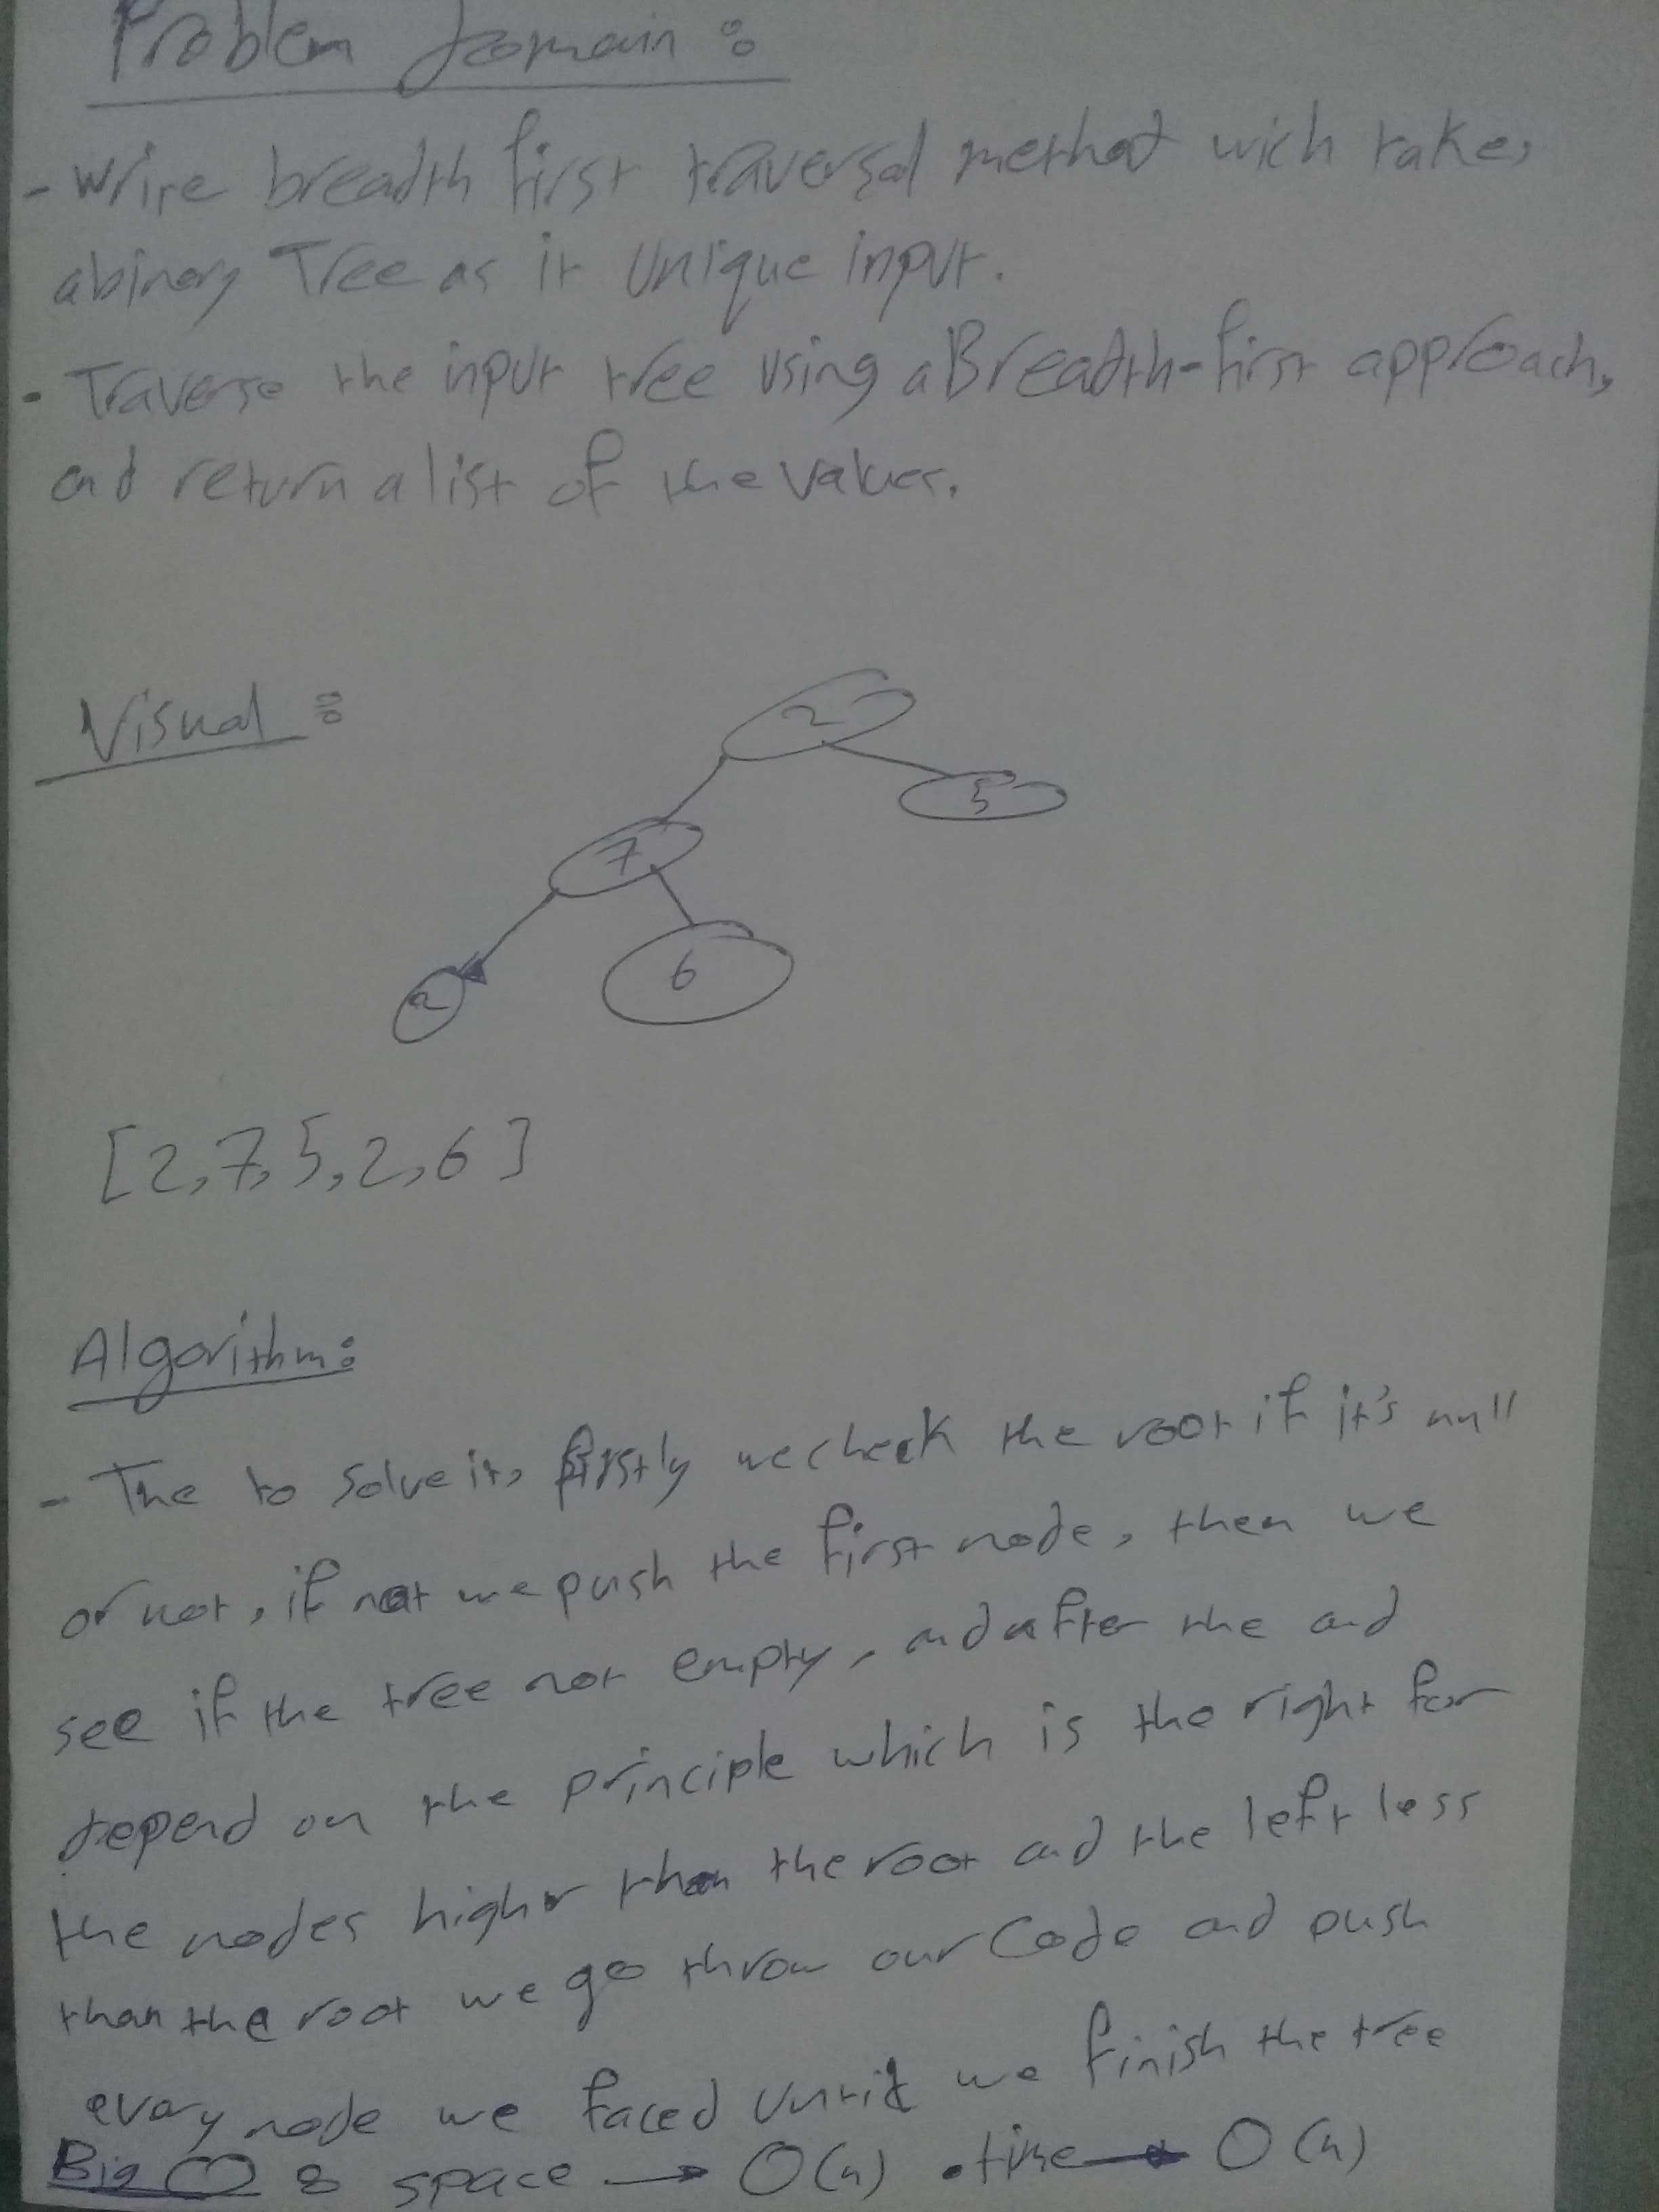 Problem domain :
- Write breadth first traversal method wich take,
a binary Tree as it Unique input.
- Traverse the input tree using a Breadth-first approach,
and return a list of the values.
Visual :
2
5
7
2
6
[2,7,5,2,6]
Algorithm:
- The to solve it, firstly we check the root if it's null
or not, if not we push the first node, then we
see if the tree not empty, and after the and
depend on the principle which is the right for
the nodes higher than the root and the left less
than the root we go throw our Code and push
every node we faced until we finish the tree
Big O : space → O(n) . time → O(n)